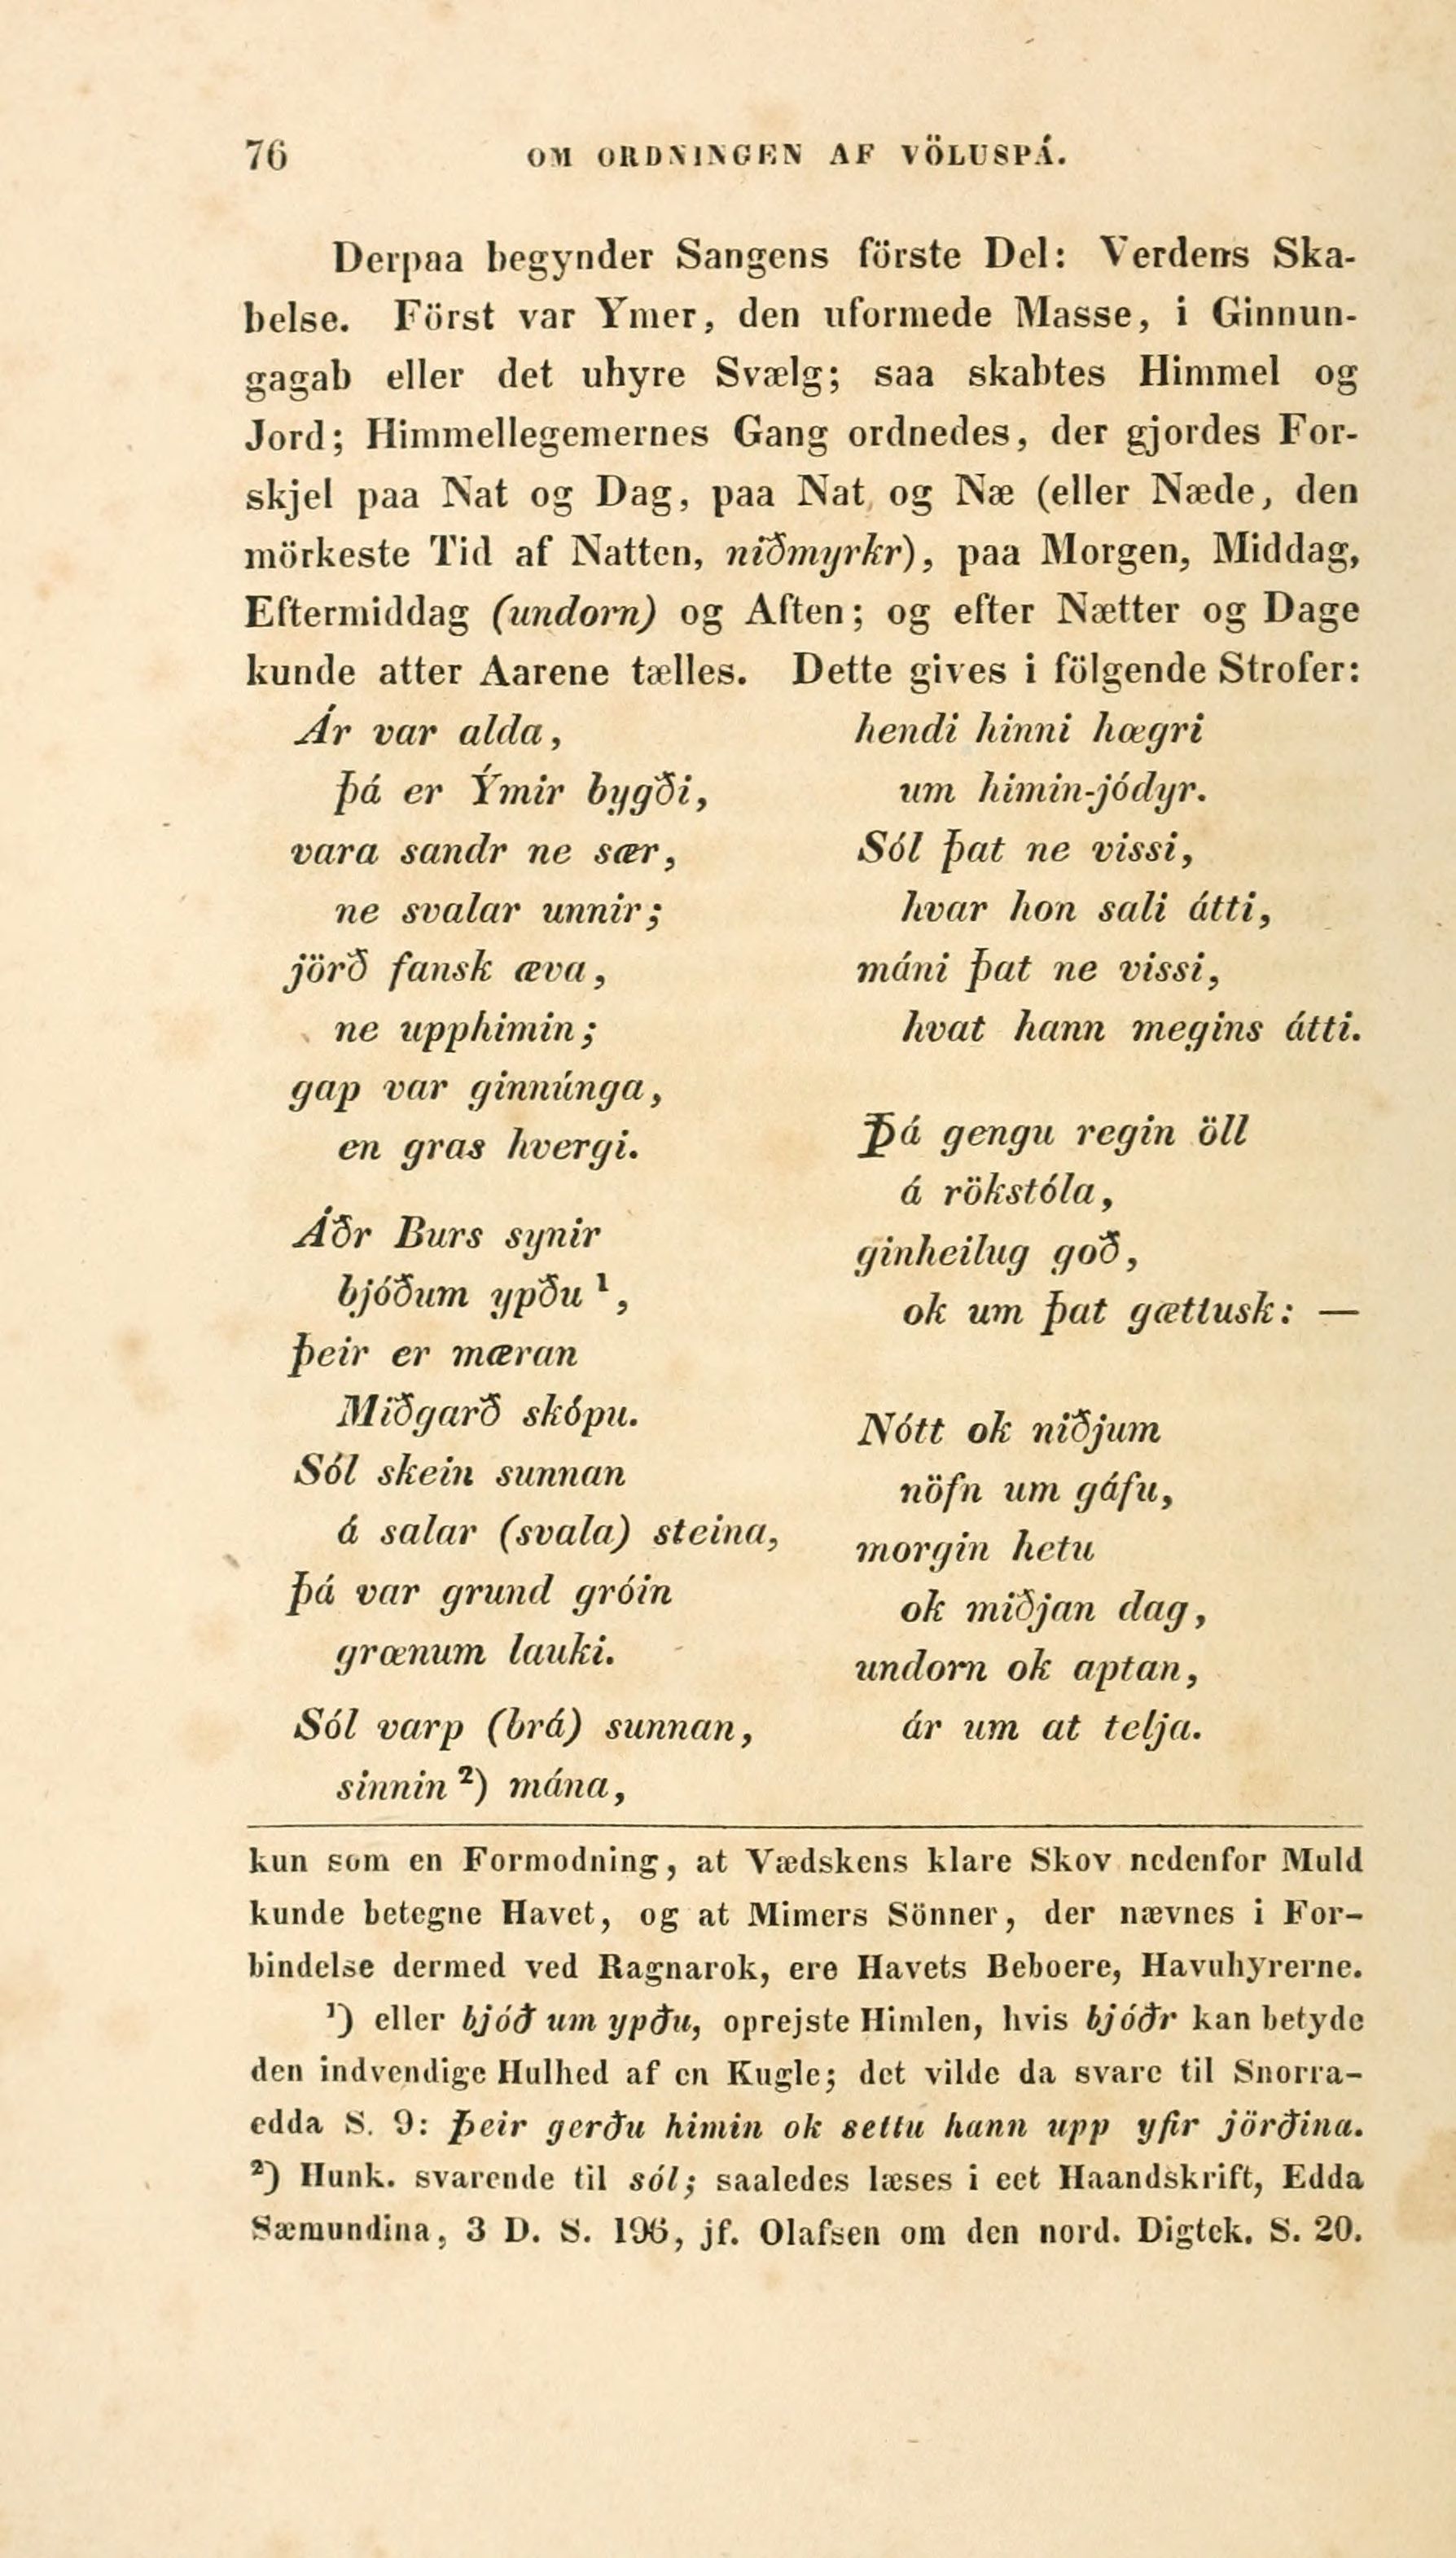 76 OM ORDNINGEN AF VÖLUSPÁ.
Derpaa begynder Sangens förste Del: Verdens Ska-
belse. Först var Ymer, den uformede Masse, i Ginnun-
gagab eller det uhyre Svælg; saa skabtes Himmel og
Jord; Himmellegemernes Gang ordnedes, der gjordes For-
skjel paa Nat og Dag, paa Nat og Næ (eller Næde, den
mörkeste Tid af Natten, niðmyrkr), paa Morgen, Middag,
Eftermiddag (undorn) og Aften; og efter Nætter og Dage
kunde atter Aarene tælles. Dette gives i fölgende Strofer:
Ár var alda,
þá er Ýmir bygði,
vara sandr ne sær,
ne svalar unnir;
jörð fansk æva,
ne upphimin;
gap var ginnúnga,
en gras hvergi.
Áðr Burs synir
bjóðum ypðu ¹,
þeir er mæran
Miðgarð skópu.
Sól skein sunnan
á salar (svala) steina,
þá var grund gróin
grœnum lauki.
Sól varp (brá) sunnan,
sinnin ²) mána,
hendi hinni hœgri
um himin-jódyr.
Sól þat ne vissi,
hvar hon sali átti,
máni þat ne vissi,
hvat hann megins átti.
Þá gengu regin öll
á rökstóla,
ginheilug goð,
ok um þat gættusk: —
Nótt ok niðjum
nöfn um gáfu,
morgin hetu
ok miðjan dag,
undorn ok aptan,
ár um at telja.
kun som en Formodning, at Vædskens klare Skov nedenfor Muld
kunde betegne Havet, og at Mimers Sönner, der nævnes i For-
bindelse dermed ved Ragnarok, ere Havets Beboere, Havuhyrerne.
¹) eller bjóð um ypðu, oprejste Himlen, hvis bjóðr kan betyde
den indvendige Hulhed af en Kugle; det vilde da svare til Snorra-
edda S. 9: þeir gerðu himin ok settu hann upp yfir jörðina.
²) Hunk. svarende til sól; saaledes læses i eet Haandskrift, Edda
Sæmundina, 3 D. S. 196, jf. Olafsen om den nord. Digtek. S. 20.